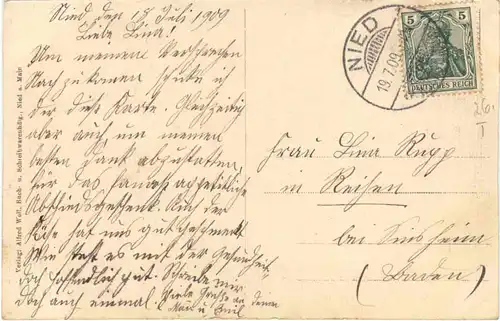 Nied, den 18 Juli 1909
Liebe Lina!
Um meinem Versprechen
Nachzukommen schicke ich
dir diese Karte. Gleichzeitig
aber auch um meinen
besten Dank abzustatten
für das famose appetitliche
Abschiedsgeschenk. Auch der
hat uns gut geschmeckt.
Wie steht es mit der Gesundheit,
doch hoffendlich gut. Schreibe mir
doch auch einmal. Viele Grüße an deine
u. Emil
Verlag: Alfred Wolf, Buch- u. Schreibwarenhdlg., Nied a. Main
NIED
19.7.09
5 5
DEUTSCHES REICH
Frau Lina Rupp
in Reihen
bei Sinsheim
(Baden)